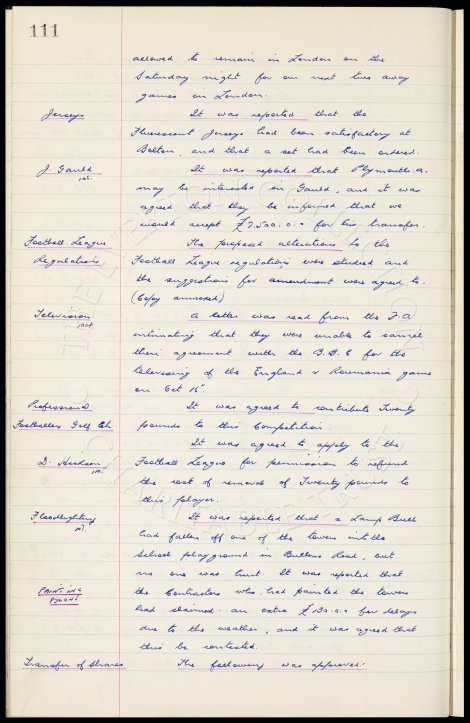 111
allowed to remain in London on the
Saturday night for our next two away
games in London.
Jerseys It was reported that the
Fluerescent Jerseys had been satisfactory at
Bolton, and that a set had been ordered.
J. Gauld It was reported that Plymouth. a.
may be interested in Gauld, and it was
agreed that they be informed that we
would accept £7,500.0.0 for his transfer.
Football League The proposed alterations to the
Regulations Football League regulations were studied and
the suggestions for amendment were agreed to.
(Copy annexed)
Television A letter was read from the F.A
intimating that they were unable to cancel
their agreement with the B.B.C for the
televising of the England v Roumania game
on Oct 15
Professional It was agreed to contribute Twenty
Footballers Golf Ch. pounds to this Competition.
It was agreed to apply to the
D. Hickson Football League for permission to refund
the cost of removal of Twenty pounds to
this player.
Floodlighting It was reported that a Lamp Bulb
had fallen off one of the towers into the
School playground in Bullens Road, but
no one was hurt It was reported that
PAINTING the Contractors who had painted the towers
PYLONS had claimed an extra £130.0.0 for delays
due to the weather, and it was agreed that
this be contested.
Transfer of Shares The following was approved: